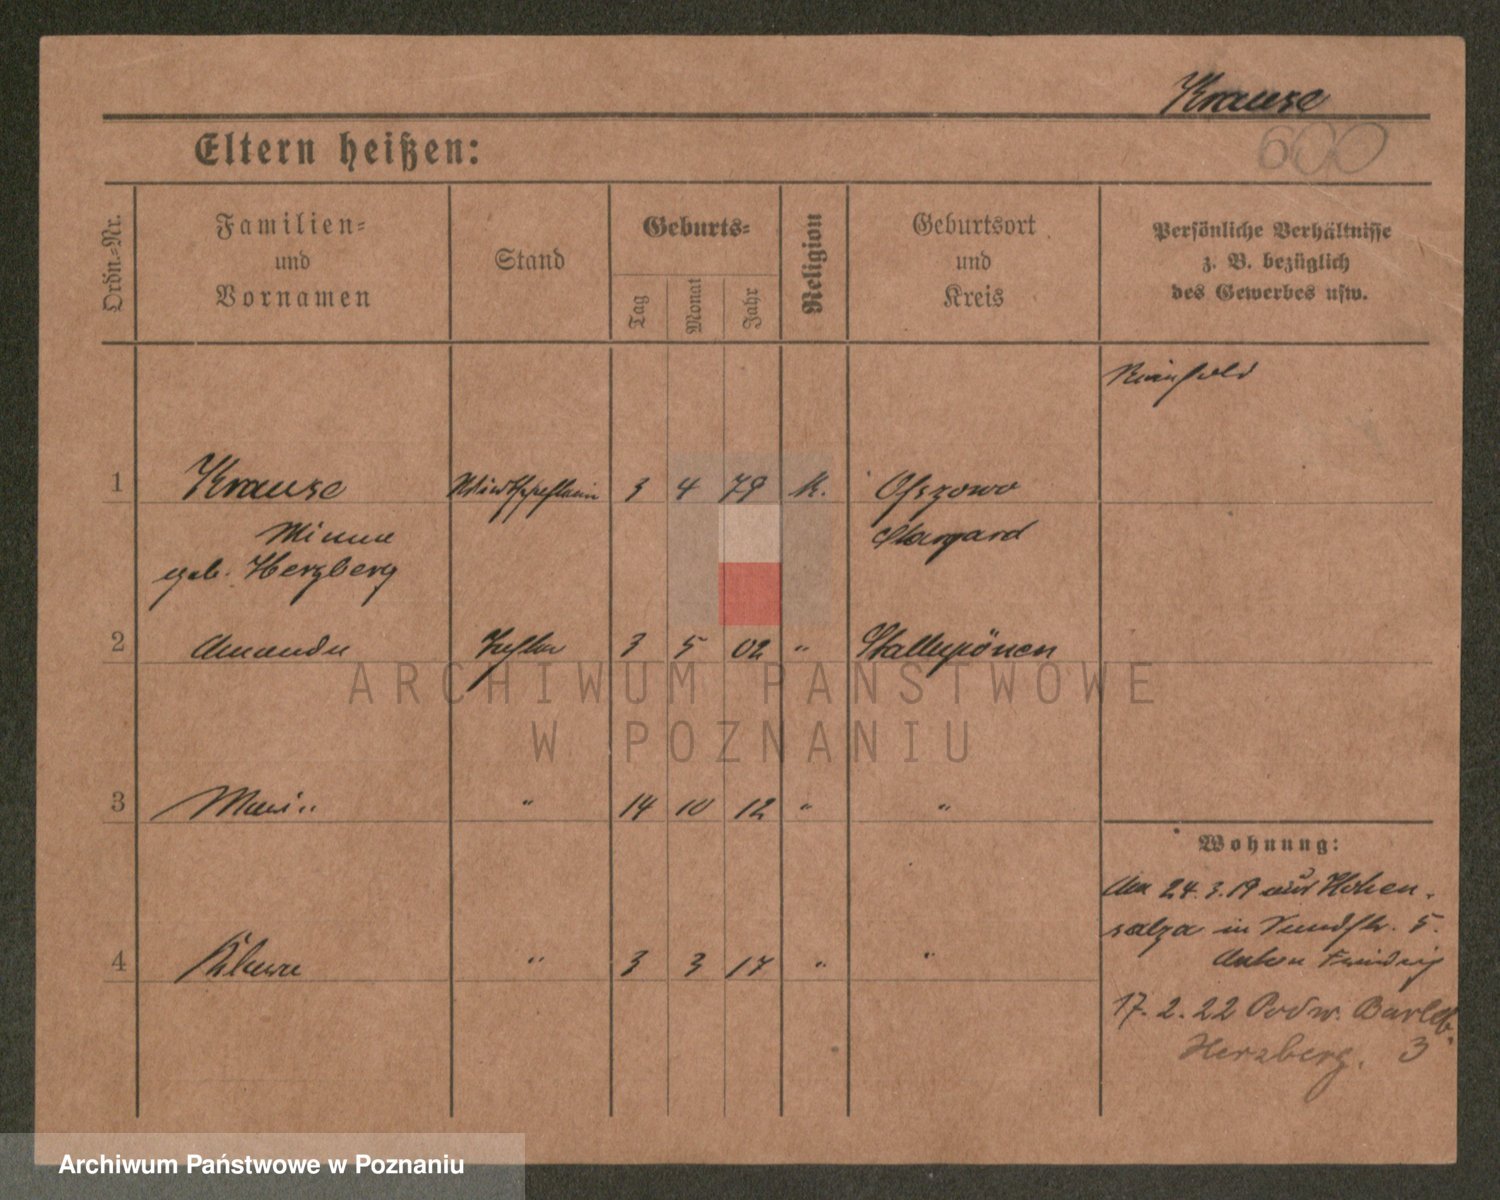 Krause
600
Eltern heißen:
Ordn.-Nr.
Familien-
und
Vornamen
Stand
Geburts-
Tag
Monat
Jahr
Religion
Geburtsort
und
Kreis
Persönliche Verhältnisse
z. B. bezüglich
des Gewerbes usw.
1 Krause 3 4 79 K.
Minna Stargard
geb. Herzberg
2 Amanda Tochter 3 5 02 " Stallupönen
3 " 14 10 12 " "
4 " 3 3 17 " "
Wohnung:
Am 24.3.19 aus Hohen-
salza in 5.
Anton
17.2.22 Podw.
Herzberg. 3
ARCHIWUM PAŃSTWOWE
W POZNANIU
Archiwum Państwowe w Poznaniu